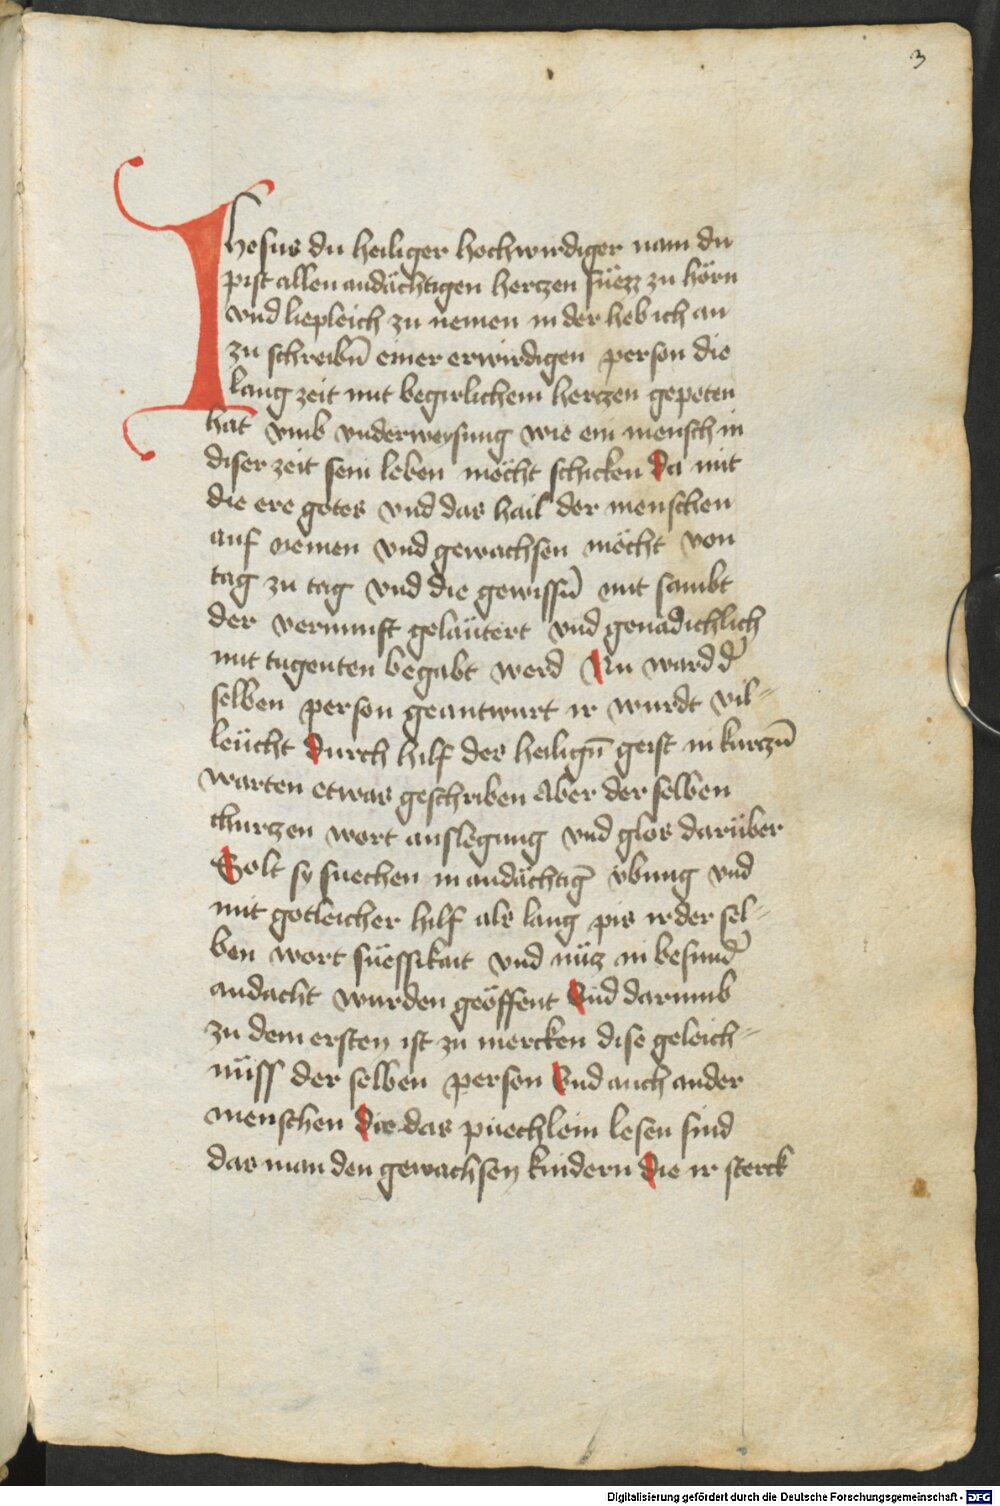 3
Jhesus du heiliger hochwirdiger nam du
pist allen andächtigen hertzen süezz zu hörn
vnd liepleich zu nemen in der heb ich an
zu schreibn̄ einer erwirdigen person die
lang zeit mit begirlichem hertzen gepeten
hat vmb vnderweysung wie ein mensch in
diser zeit sein leben möcht schicken da mit
die ere gotes vnd das hail der menschen
auf nemen vnd gewachsen möcht von
tag zu tag vnd die gewissn̄ mit sambt
der vernunft geläutert vnd genädichlich
mit tugenten begabt werd Nu ward d̄
selben person geantwurt ir wurdt vil-
leücht durch hilf des heilign̄ geist in kurczn̄
warten etwas geschriben Aber der selben
churzen wort auslegung vnd glos darüber
Solt sy suechen in andächtiḡ übung vnd
mit gotleicher hilf als lang pis ir der sel-
ben wort süessikait vnd nüz in besund̄
andacht wurden geöffent Vnd darumb
zu dem ersten ist zu mercken dise geleich-
nüss der selben person Vnd auch ander
menschen die das püechlein lesen sind
das man den gewachsen kindern die ir sterck
Digitalisierung gefördert durch die Deutsche Forschungsgemeinschaft - DFG